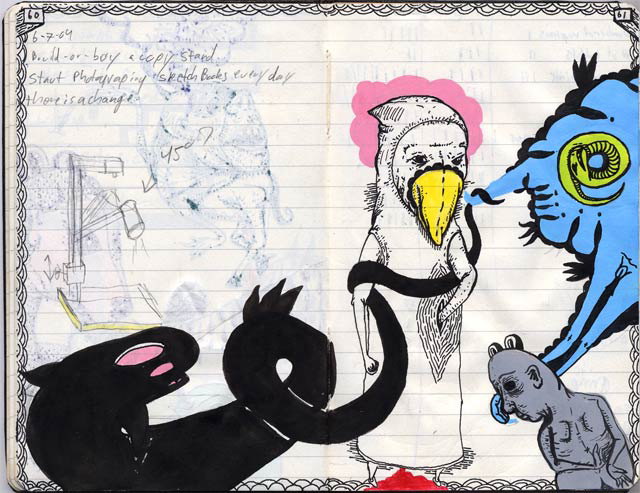 60
61
6-7-04
Build-or-buy a copy stand
Start Photographing sketchBooks every day
there is a change
45°?